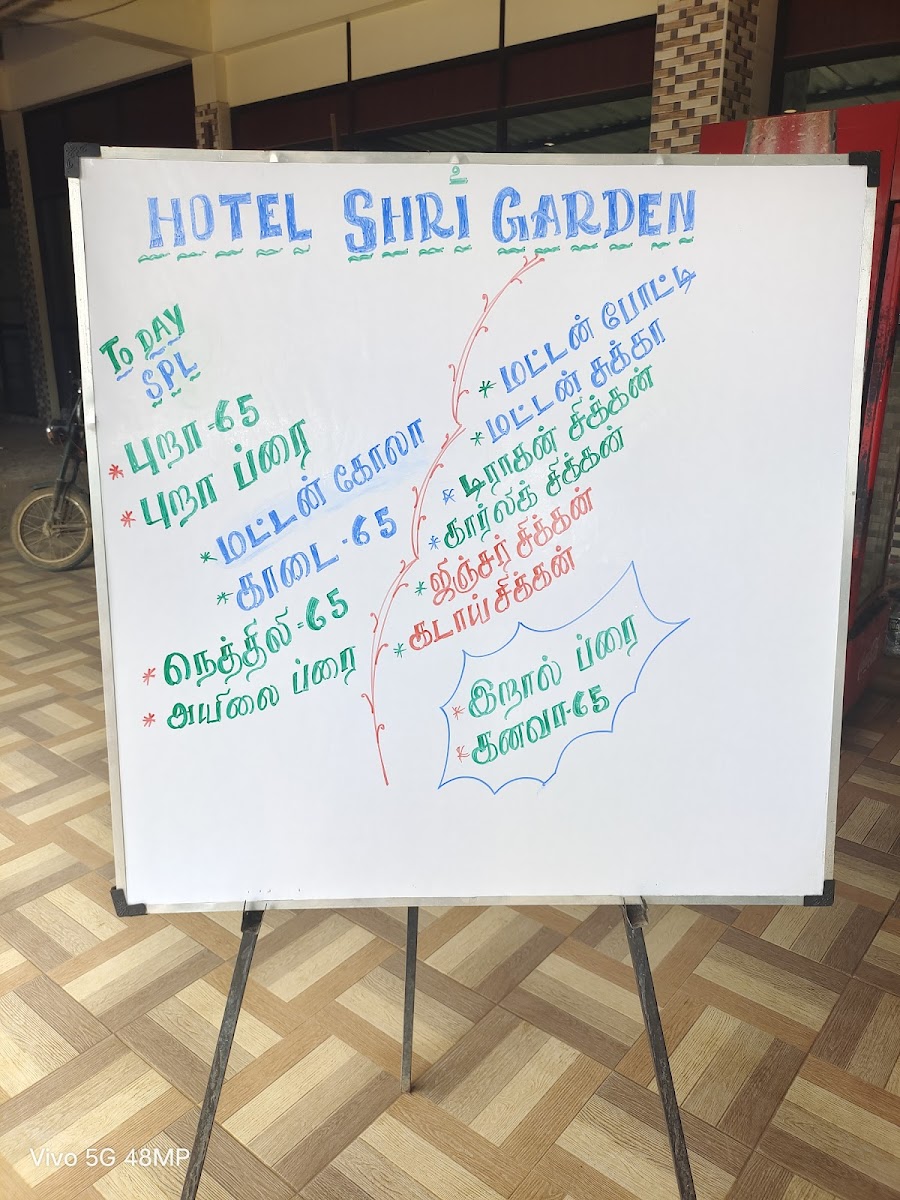 உ
HOTEL SHRI GARDEN
TO DAY
SPL
* புறா-65
* புறா ப்ரை
* மட்டன் கோலா
* காடை-65
* நெத்திலி-65
* அயிலை ப்ரை
* மட்டன் போட்டி
* மட்டன் சுக்கா
* டிராகன் சிக்கன்
* கார்லிக் சிக்கன்
* ஜிஞ்சர் சிக்கன்
* கடாய் சிக்கன்
* இறால் ப்ரை
* கனவா-65
Vivo 5G 48MP